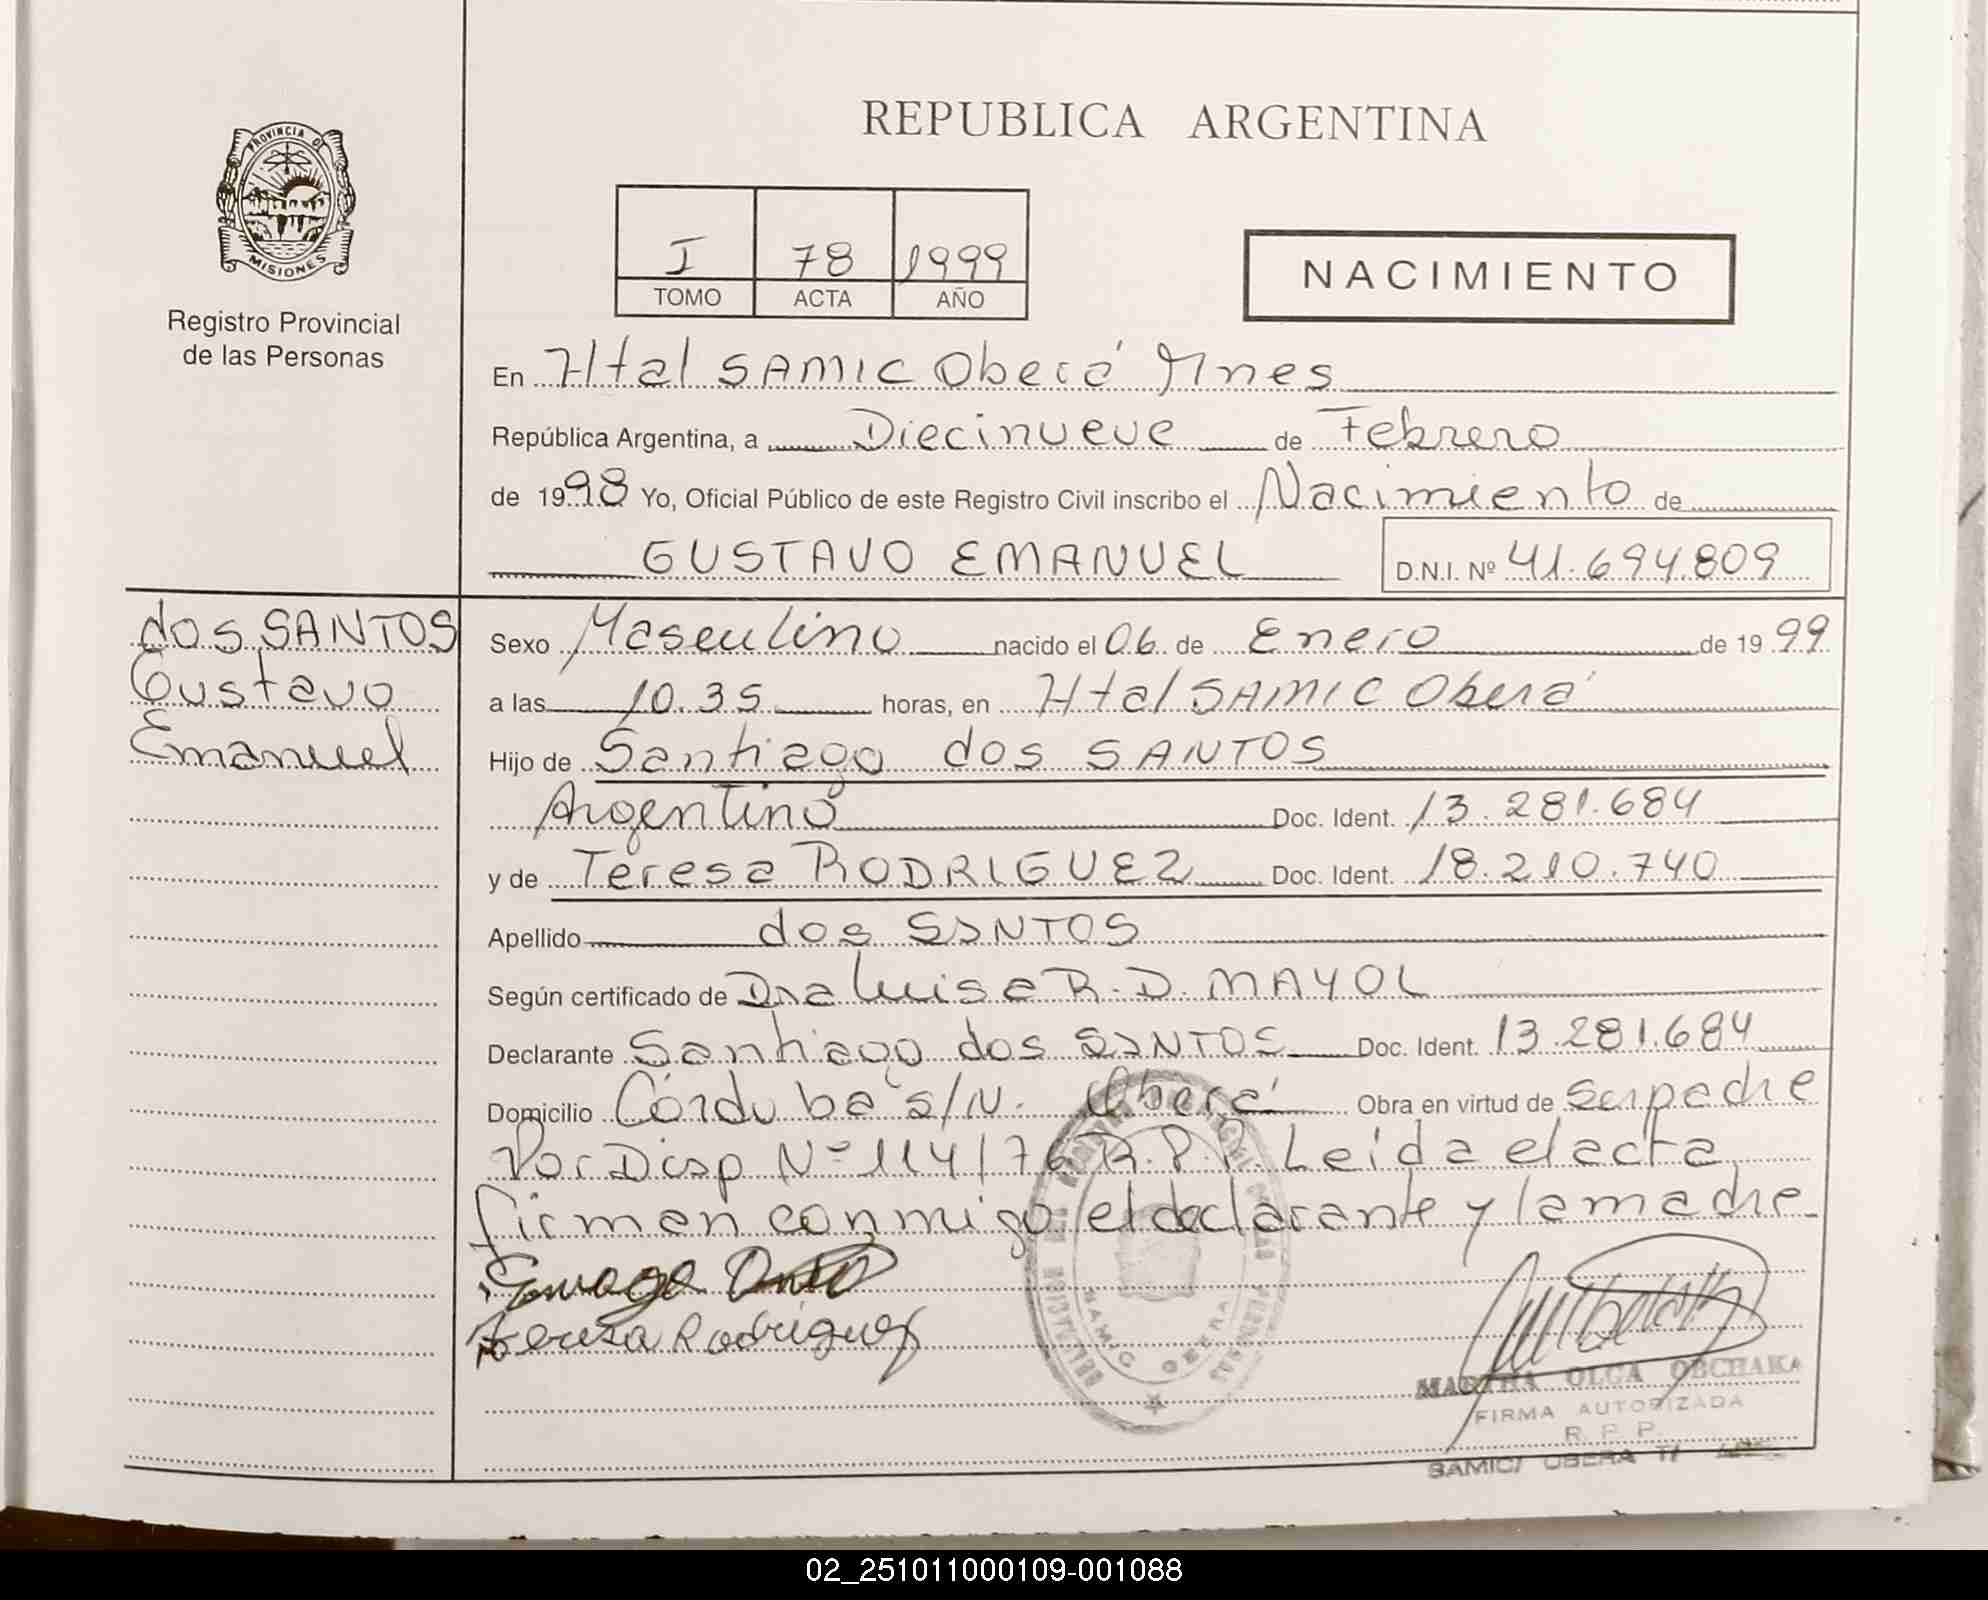 REPUBLICA ARGENTINA
PROVINCIA DE
MISIONES
Registro Provincial
de las Personas
I 78 1999
TOMO ACTA AÑO
NACIMIENTO
En Htal SAMIC Oberá Mnes
República Argentina, a Diecinueve de Febrero
de 1998 Yo, Oficial Público de este Registro Civil inscribo el Nacimiento de
GUSTAVO EMANUEL D.N.I. Nº 41.694.809
dos SANTOS
Gustavo
Emanuel
Sexo Masculino nacido el 06 de Enero de 1999
a las 10.35 horas, en Htal SAMIC Oberá
Hijo de Santiago dos SANTOS
Argentino Doc. Ident. 13.281.684
y de Teresa RODRIGUEZ Doc. Ident. 18.210.740
Apellido dos SANTOS
Según certificado de Dra Luisa R. D. MAYOL
Declarante Santiago dos SANTOS Doc. Ident. 13.281.684
Domicilio Córdoba s/N. Oberá Obra en virtud de ser padre
Por Disp Nº 114/76 R.P.P. Leída el acta
firman conmigo el declarante y la madre
Teresa Rodriguez
SAMIC OBERA
MARTHA OLGA OBCHAKA
FIRMA AUTORIZADA
R. P. P.
SAMIC/ OBERA
02_251011000109-001088